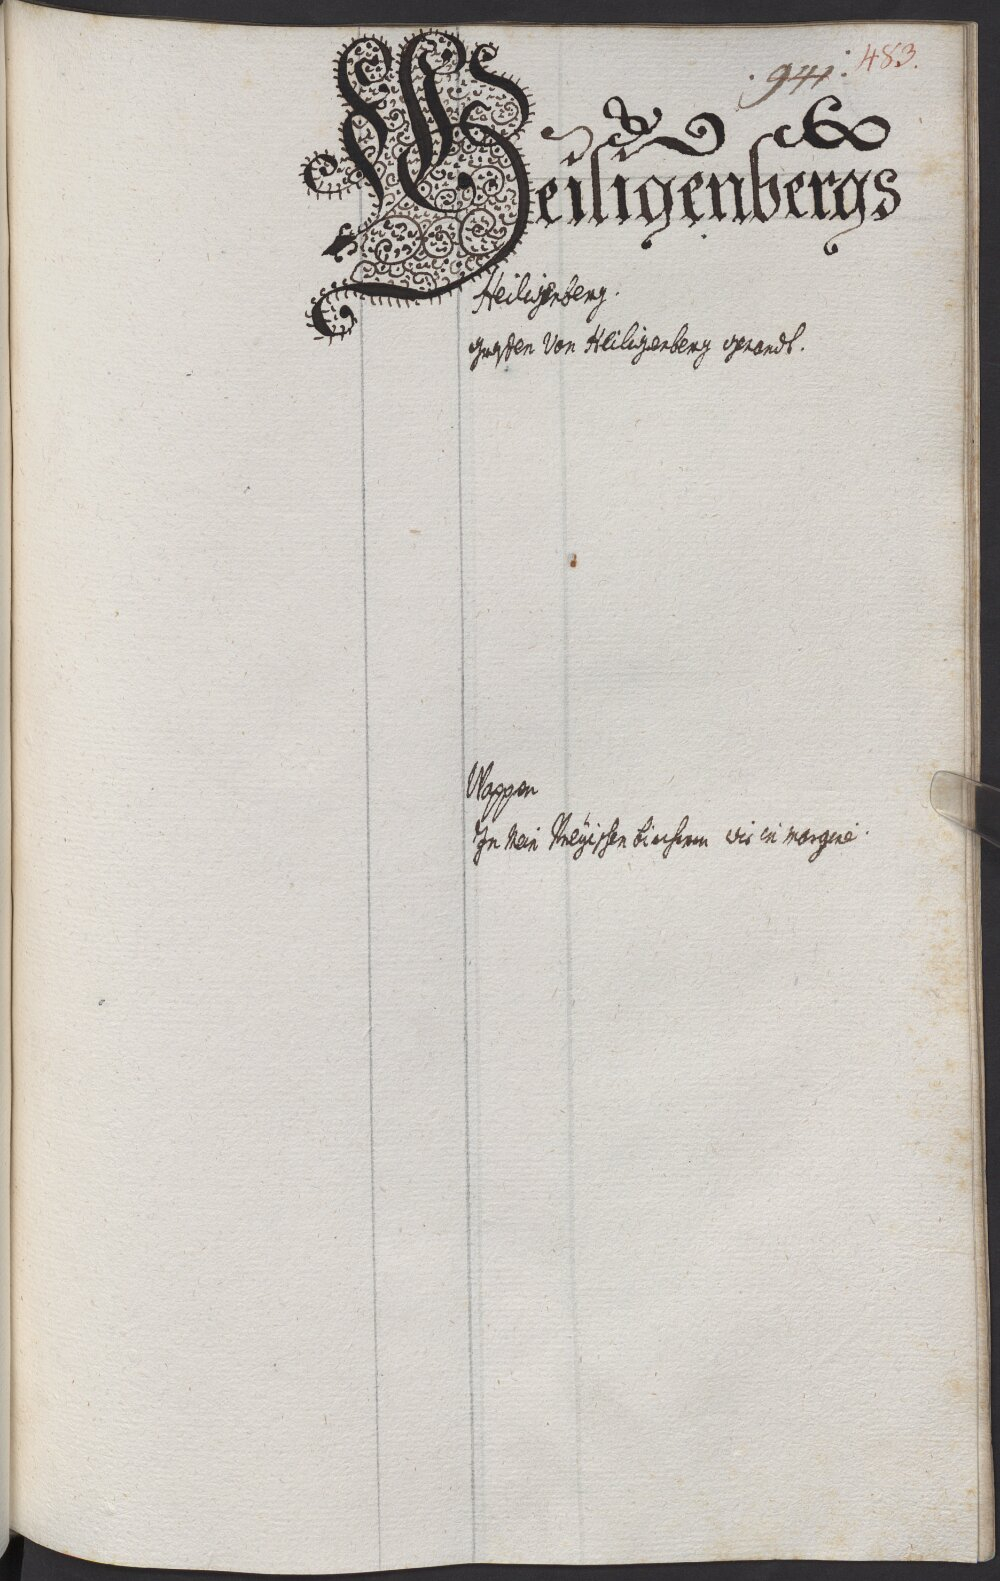 ·941·
483.
Heiligenbergs
Heiligenberg.
graffen Von Heiligenberg genandt.
Wappen
In Mein büechern wie in margine.